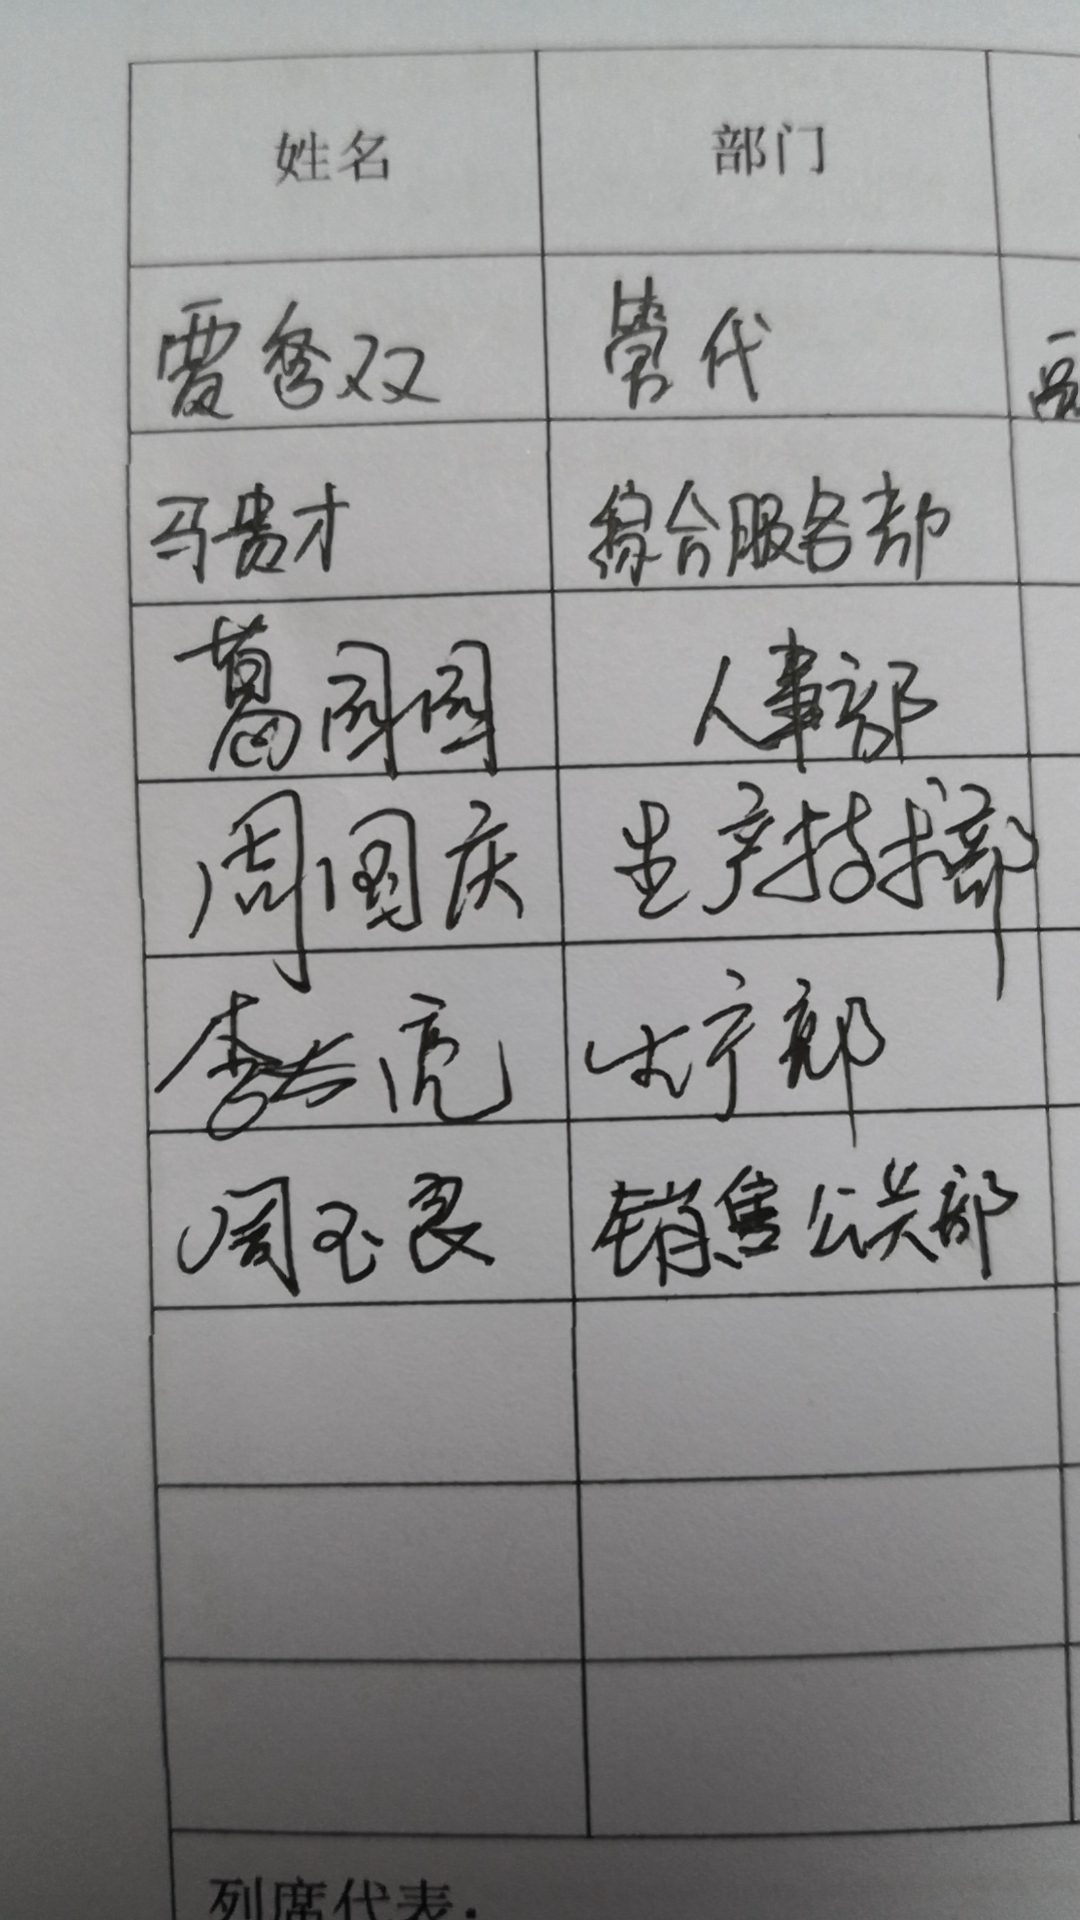 姓名 部门
双 管代
马贵才 综合服务部
葛园园 人事部
周国庆 生产技术部
李长亮 生产部
周玉良 销售公关部
列席代表：